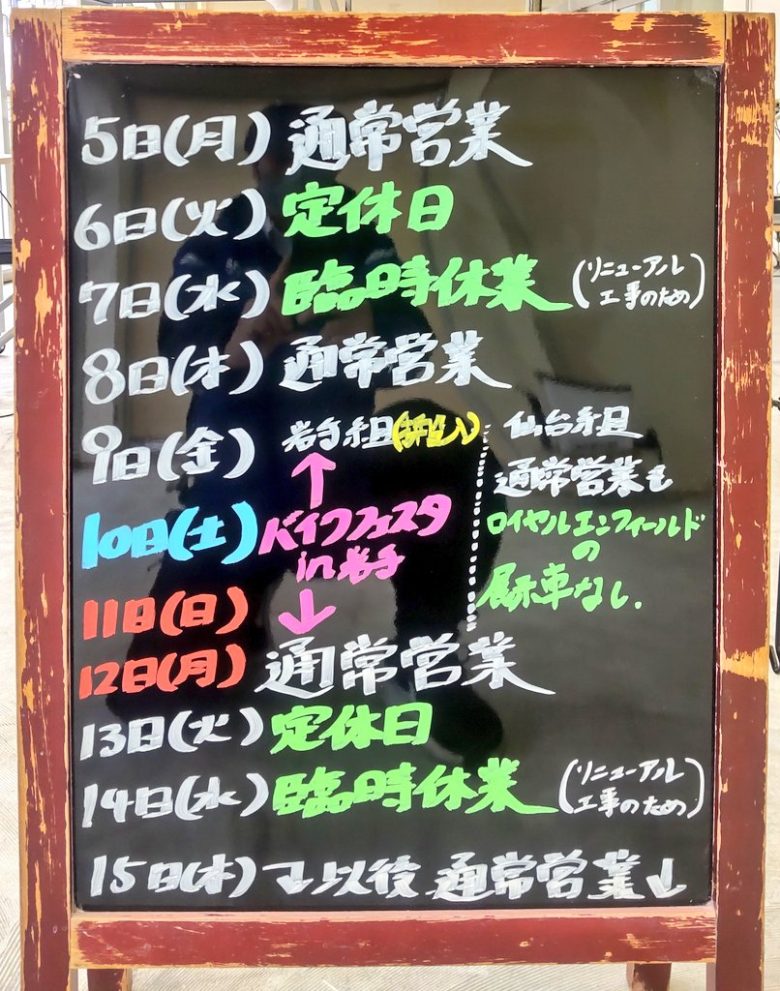 5日(月) 通常営業
6日(火) 定休日
7日(水) 臨時休業 (リニューアル
工事のため)
8日(木) 通常営業
9日(金) 岩手組(搬入) 仙台組
通常営業も
10日(土) バイクフェスタ
in岩手
ロイヤルエンフィールド
の
展示車なし.
11日(日)
12日(月) 通常営業
13日(火) 定休日
14日(水) 臨時休業 (リニューアル
工事のため)
15日(木) 以後 通常営業